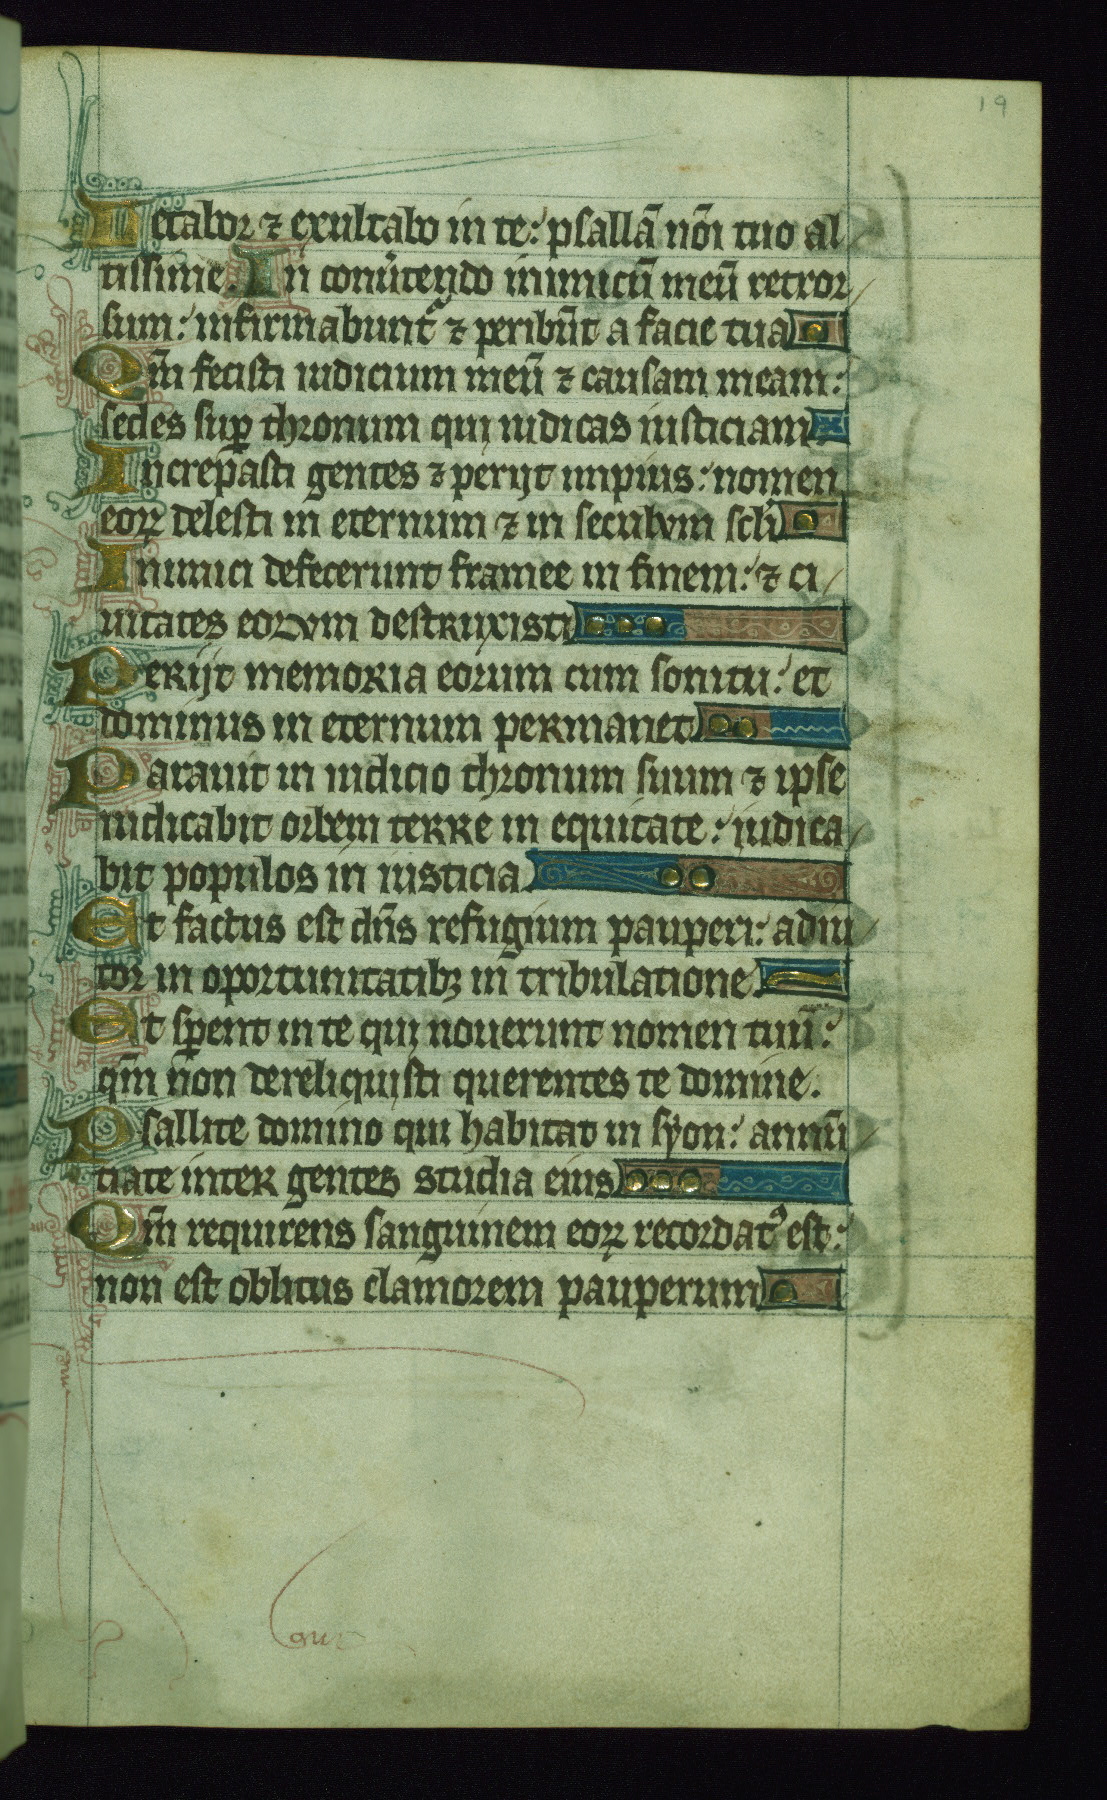 19
Letabor ⁊ exultabo in te: psallā nōi tuo al
tissime. In conūtendo inimicū meū retror
sum: infirmabunt᷑ ⁊ peribūt a facie tua
Qm̄ fecisti iudicium meū ⁊ causam meam:
sedes suꝑ thronum qui iudicas iusticiam
Increpasti gentes ⁊ perijt impius: nomen
eoꝝ delesti in eternum ⁊ in seculum scl̄i
Inimici defecerunt framee in finem: ⁊ ci
uitates eorum destruxisti
Perijt memoria eorum cum sonitu: et
dominus in eternum permanet
Parauit in iudicio thronum suum ⁊ ipse
iudicabit orbem terre in equitate: iudica
bit populos in iusticia
Et factus est dn̄s refugium pauperi: adiu
tor in oportunitatibꝫ in tribulatione.
Et sꝑent in te qui nouerunt nomen tuū:
qm̄ non dereliquisti querentes te domine.
Psallite domino qui habitat in syon: annū
tiate inter gentes studia eius
Qm̄ requirens sanguinem eoꝝ recordatꝰ est:
non est oblitus clamorem pauperum